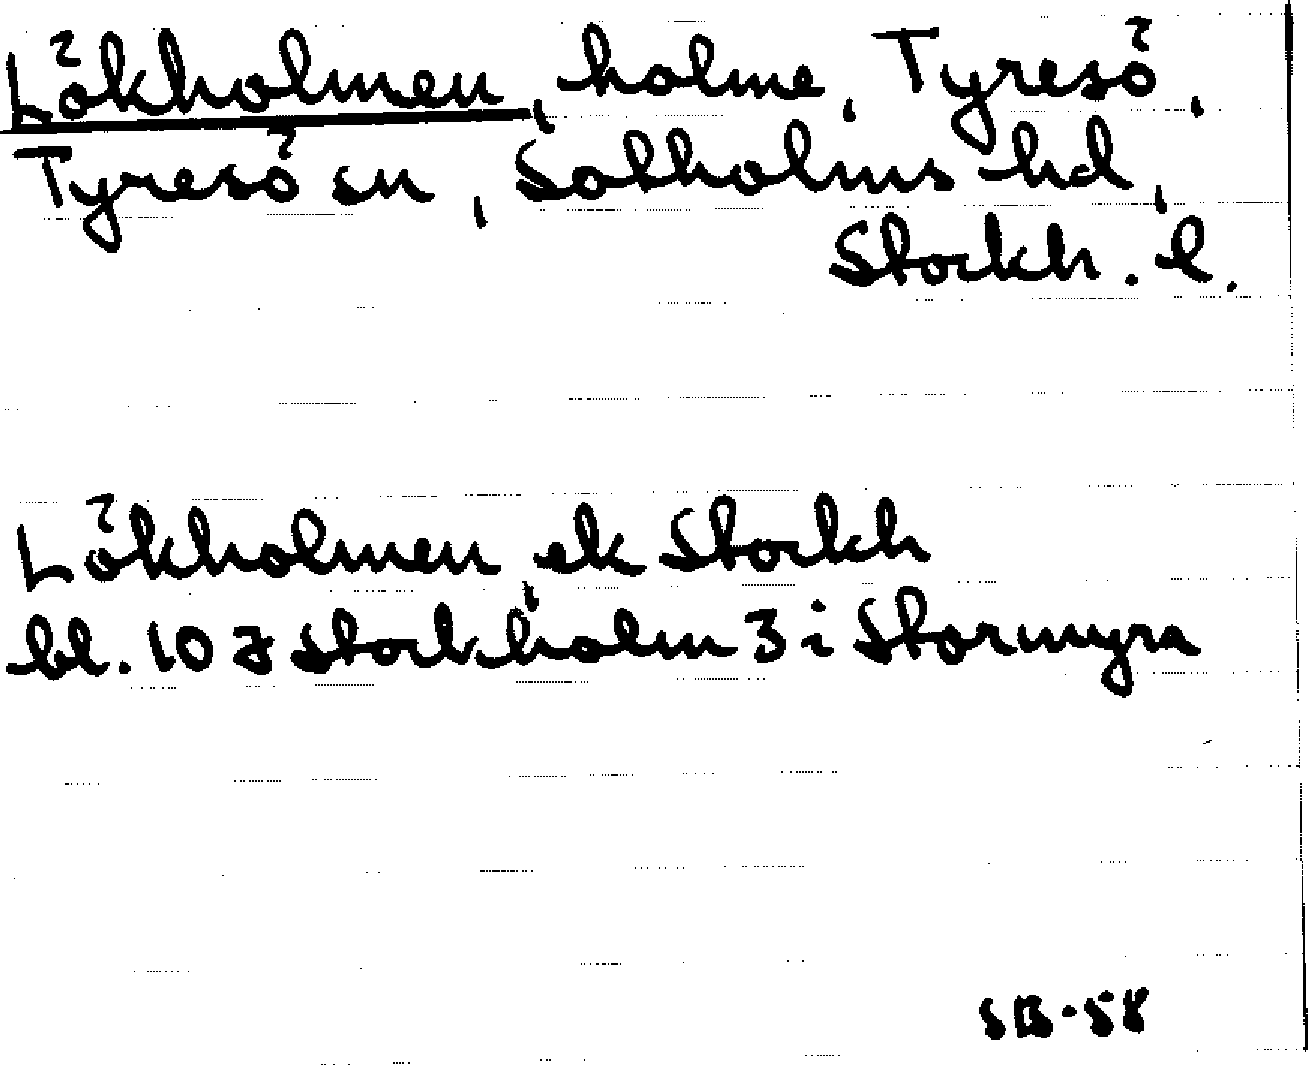 Lökholmen, holme, Tyresö,
Tyresö sn, Sotholms hd,
Stockh. l.
Lökholmen, ek Stockh
bl. 10 J Stockholm 3 i Stormyra
SB-58